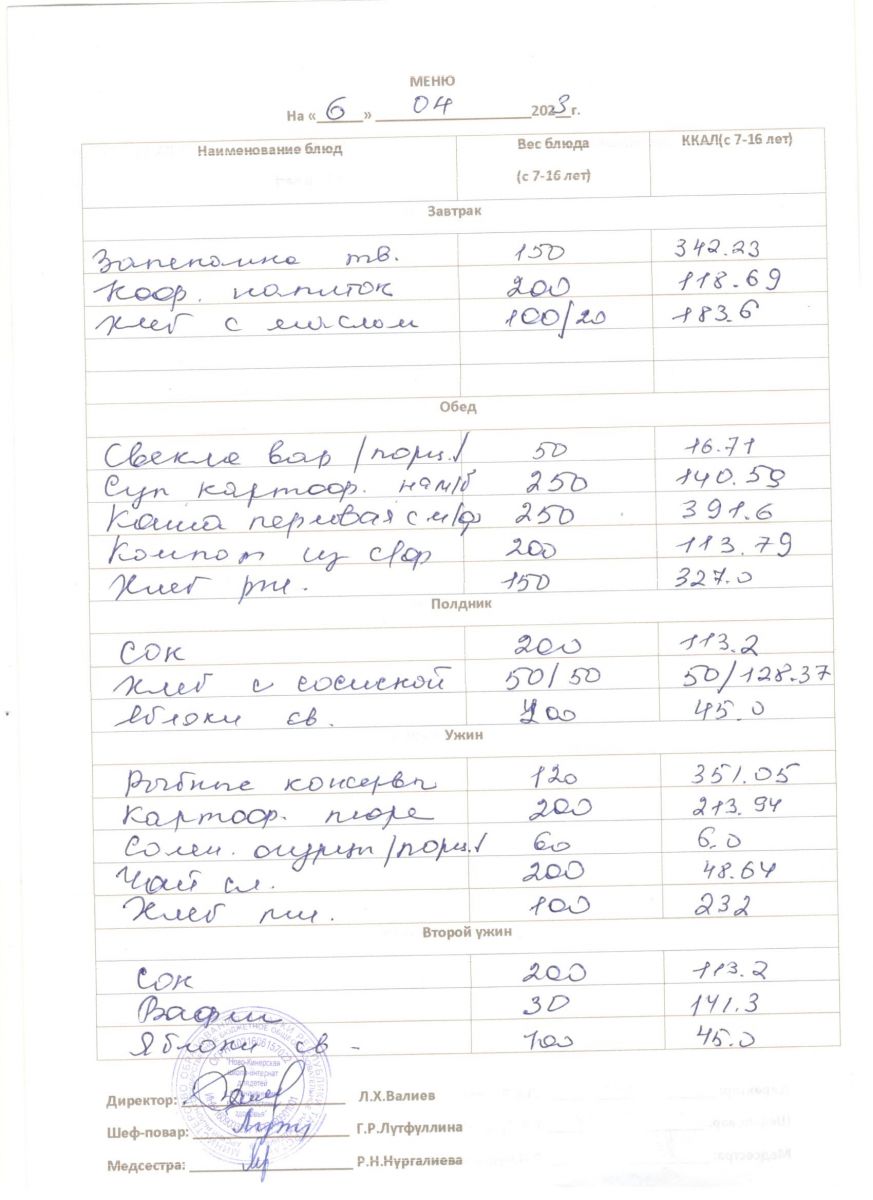 МЕНЮ
На « 6 » 04 2023 г.
Наименование блюд Вес блюда (с 7-16 лет) ККАЛ(с 7-16 лет)
Завтрак
Запеканка тв. 150 342.23
Коф. напиток 200 118.69
Хлеб с маслом 100/20 183.6
Обед
Свекла вар /порц./ 50 16.71
Суп картоф. на м/б 250 140.59
Каша перловая с м/ф 250 391.6
Компот из с/ф 200 113.79
Хлеб рж. 150 327.0
Полдник
Сок 200 113.2
Хлеб с сосиской 50/50 50/128.37
Яблоки св. 100 45.0
Ужин
Рыбные консервы 120 351.05
Картоф. пюре 200 213.94
Солен. огурцы /порц./ 60 6.0
Чай сл. 200 48.64
Хлеб пш. 100 232
Второй ужин
Сок 200 113.2
Вафли 30 141.3
Яблоки св - 100 45.0
"Ново-Кинерская
школа-интернат
для детей
здоровья"
Директор: Л.Х.Валиев
Шеф-повар: Г.Р.Лутфуллина
Медсестра: Р.Н.Нургалиева